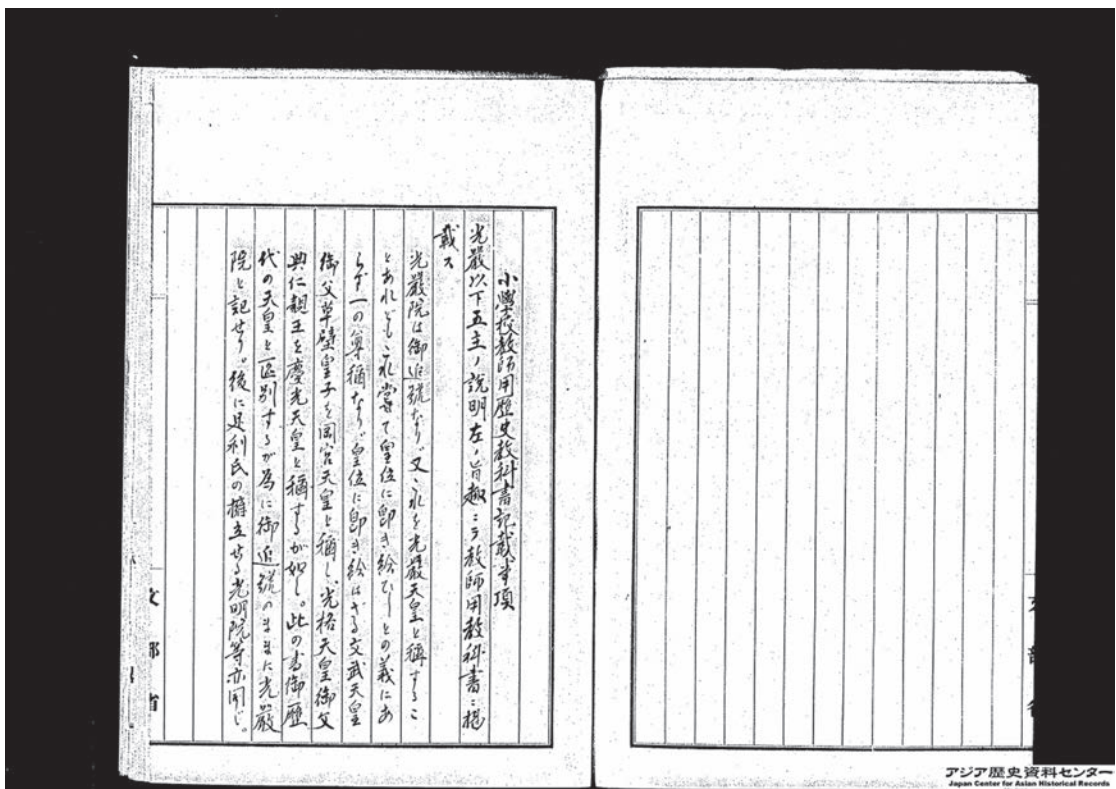 小學校教師用歷史教科書記載事項
光嚴以下五主ノ說明左ノ旨趣ニテ教師用教科書ニ揭
載ス
光嚴院は御追號なり。又、之を光嚴天皇と稱するこ
とあれども、之嘗て皇位に卽き給ひしとの義にあ
らず一の尊稱なり。皇位に卽き給はざる文武天皇
御父草壁皇子を岡宮天皇と稱し、光格天皇御父
典仁親王を慶光天皇と稱するが如し。此の書御歷
代の天皇と區別するが爲に御追號のままに光嚴
院と記せり。後に足利氏の擁立せる光明院等亦同じ。
文部省
アジア歴史資料センター
Japan Center for Asian Historical Records